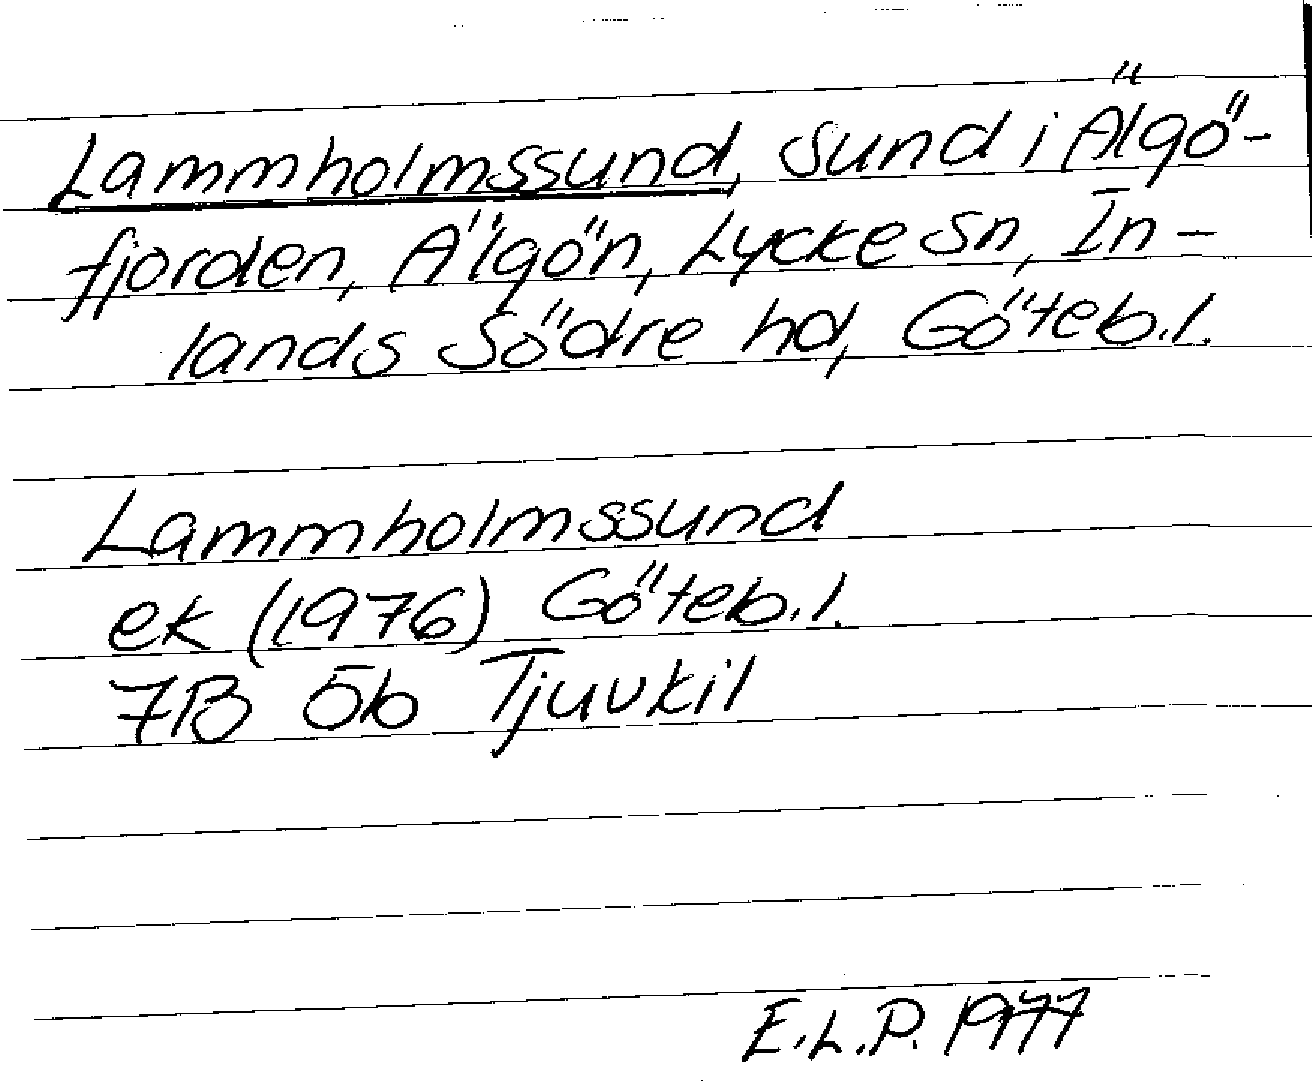 Lammholmssund, Sund i Älgö-
fjorden, Älgön, Lycke sn, In-
lands Södre hd, Göteb.l.
Lammholmssund
ek (1976) Göteb.l.
7B 5b Tjuvkil
E.L.P. 1977